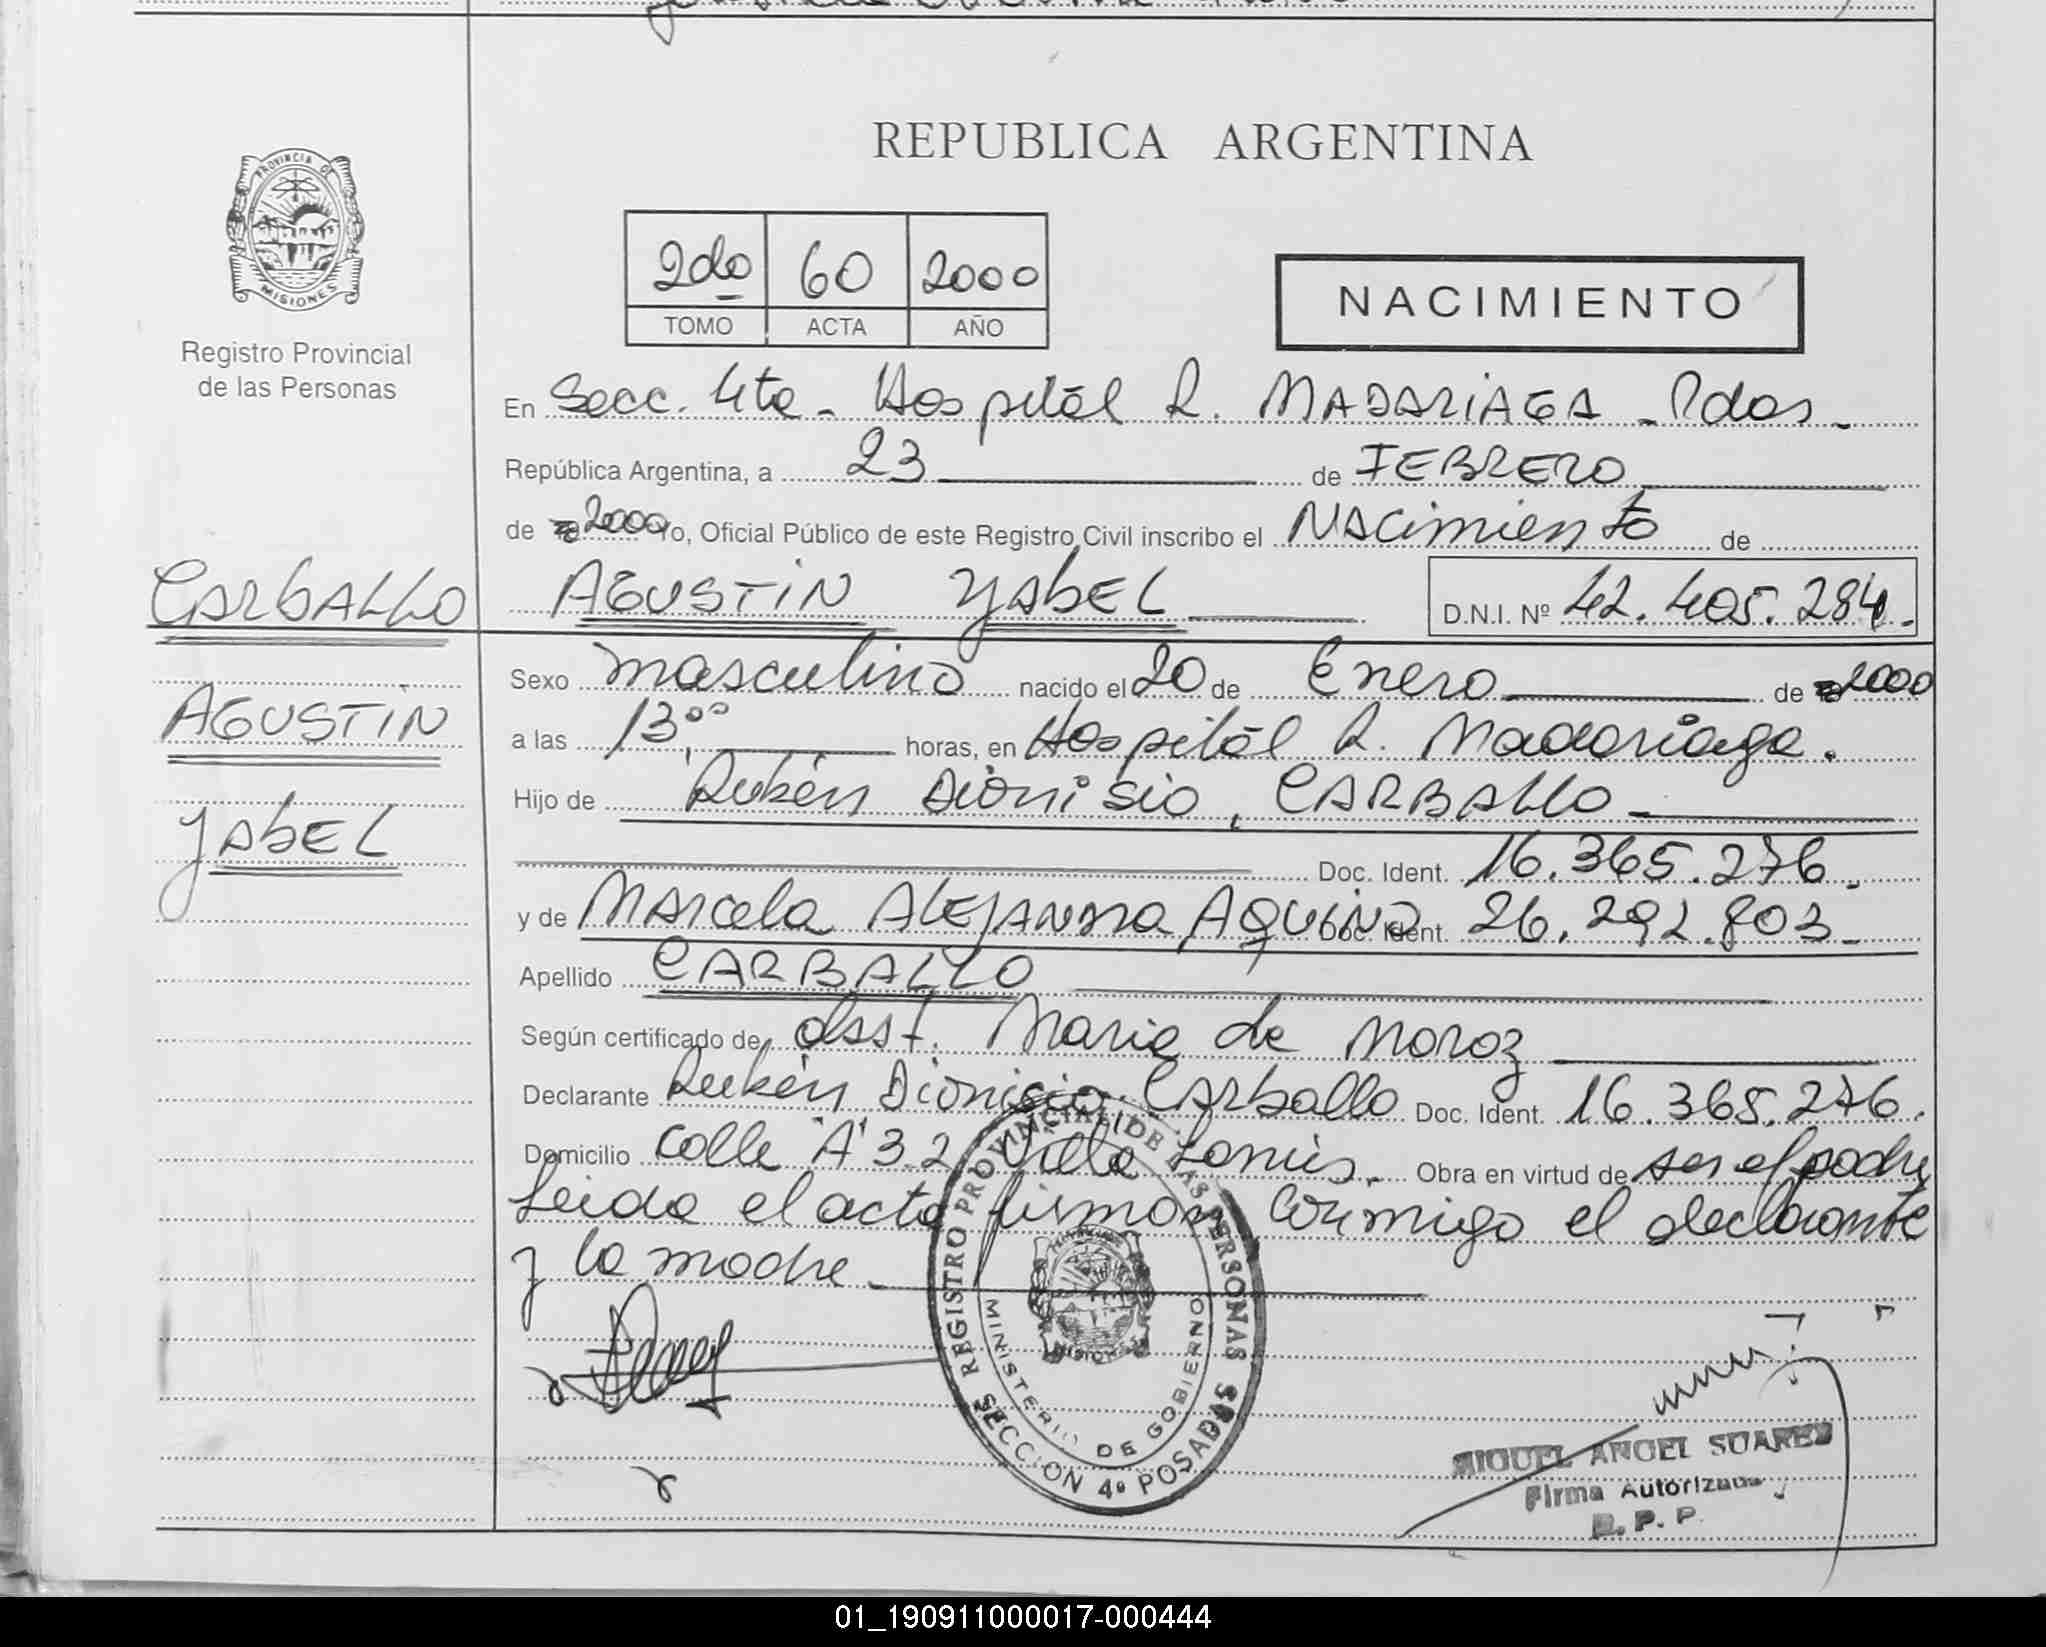 REPUBLICA ARGENTINA
PROVINCIA DE
MISIONES
Registro Provincial
de las Personas
2do 60 2000
TOMO ACTA AÑO
NACIMIENTO
En Secc. 4ta - Hospital R. MADARIAGA - Pdas -
República Argentina, a 23 de FEBRERO
de 2000 Yo, Oficial Público de este Registro Civil inscribo el Nacimiento de
CARBALLO
AGUSTIN YABEL D.N.I. Nº 42.405.284.
Sexo masculino nacido el 20 de Enero de 2000
AGUSTIN
a las 13,00 horas, en Hospital R. Madariaga.
Hijo de Rubén Dionisio, CARBALLO -
YABEL
Doc. Ident. 16.365.276.
y de Marcela ALEJANDRA AQUINO Doc. Ident. 26.292.803 -
Apellido CARBALLO
Según certificado de Obst. Maria de Moroz
Declarante Rubén Dionisio Carballo Doc. Ident. 16.365.276.
Domicilio calle "A" 32 Villa Lanús. Obra en virtud de ser el padre
Leida el acta firman conmigo el declarante
y la madre
REGISTRO PROVINCIAL DE LAS PERSONAS
MINISTERIO DE GOBIERNO
SECCION 4º POSADAS
MISIONES
MIGUEL ANGEL SUAREZ
Firma Autorizada
R. P. P.
01_190911000017-000444